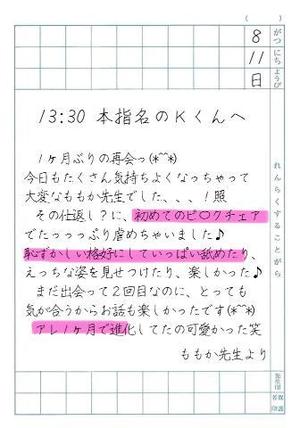 (　　)
8 がつ
11 にち
日 ようび
れんらくすることがら
13:30 本指名のKくんへ
1ヶ月ぶりの再会っ(*^^*)
今日もたくさん気持ちよくなっちゃって
大変なももか先生でした、、、！照
その仕返し？に、初めてのピ○クチェア
でたっっっぷり虐めちゃいました♪
恥ずかしい格好にしていっぱい舐めたり、
えっちな姿を見せつけたり、楽しかった♪
まだ出会って2回目なのに、とっても
気が合うからお話も楽しかったです(*^^*)
アレ1ヶ月で進化してたの可愛かった笑
ももか先生より